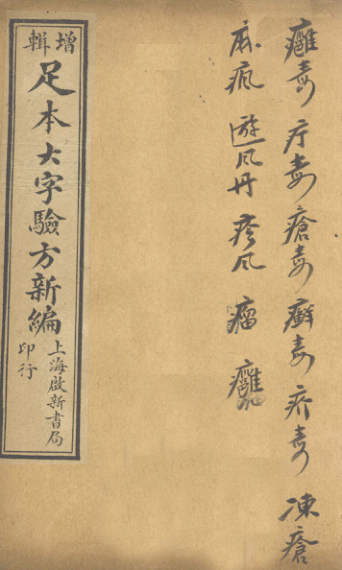 癰毒 疔毒 瘡毒 癬毒 疥毒 凍瘡
麻疯 遊风丹 疹风 瘤 癰
增輯
足本大字驗方新編
上海啟新書局
印行